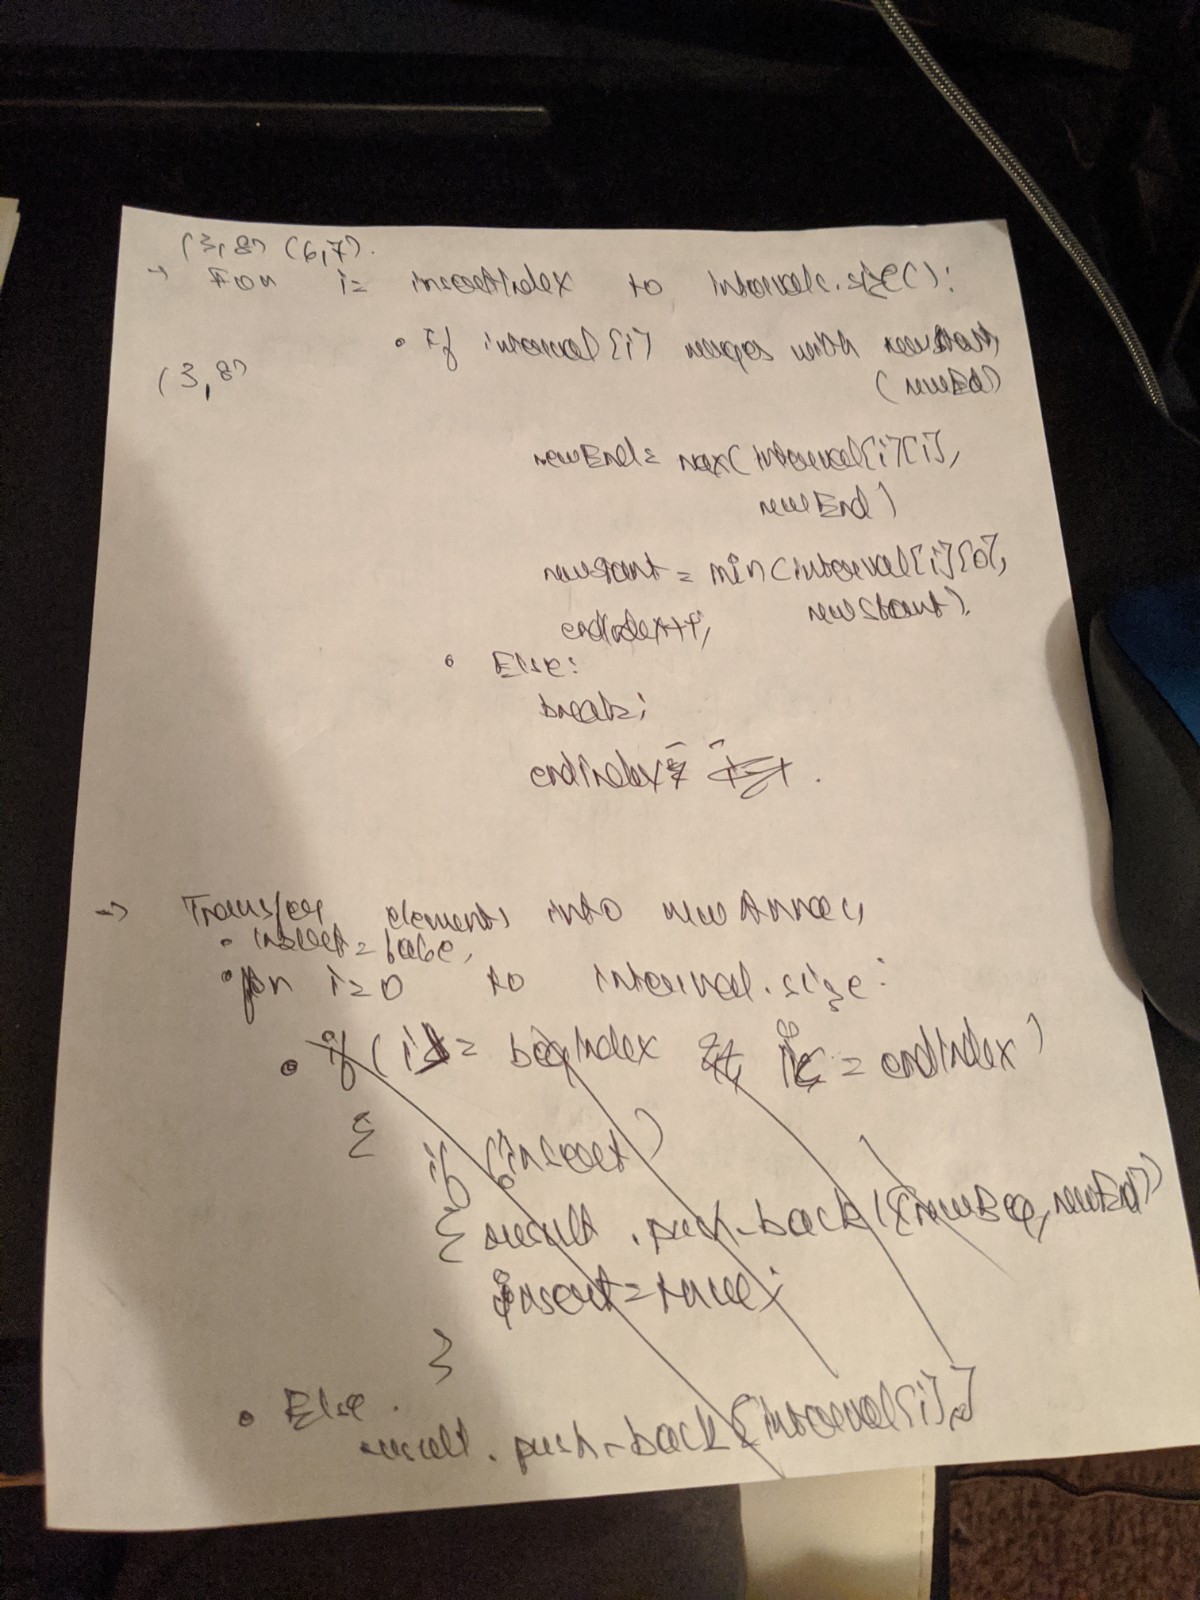 (3,8) (6,7).
→ For i= insertIndex to intervals.size():
• If interval[i] merges with newStart,
(newEnd)
(3,8)
newEnd= max(interval[i][1],
newEnd)
newStart = min(interval[i][0],
newStart).
endIndex++;
• Else:
break;
endIndex
→ Transfer elements into new Array,
• insert = false,
• for i=0 to interval.size:
• if (i = begIndex && i <= endIndex)
{
if (insert)
{ result.push-back({newBeg, newEnd})
insert = true;
}
• Else.
result.push-back[interval[i]]